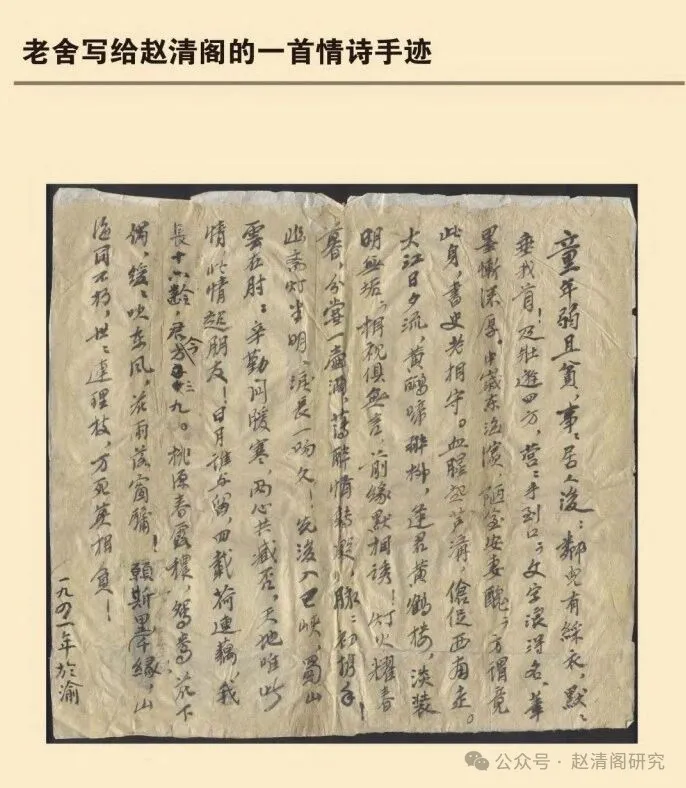 老舍写给赵清阁的一首情诗手迹
童年弱且貧,事〻居人後;鄰兒有綵衣,默〻
垂我首!及壯遊四方,營〻手到口;文字浪得名,筆
墨慚深厚。中歲東海濱,陋室安妻醜;方謂竟
此身,書史老相守。血腥起芦溝,倉促西南走。
大江日夕流,黃鸝啼碧柳,逢君黃鶴樓,淡裝
明無垢;相視俱無言,前緣默相誘!灯火耀春
暮,分嘗一壺酒,薄醉情轉凝,脉〻初携手!
幽斋灯半明,淚長一吻久!先後入巴峽,蜀山
雲在肘;辛勤问暖寒,兩心共臧否。天地唯此
情,此情超朋友!日月誰与留,四載荷連藕,我
長十八齡,君方今九。桃源春露穠,鴛鴦花下
偶,緩〻吹东風,花雨落窗牖!願斯緣,山
海同不朽,世〻連理枝,万死莫相負!
一九四一年於渝
公众号·赵清阁研究